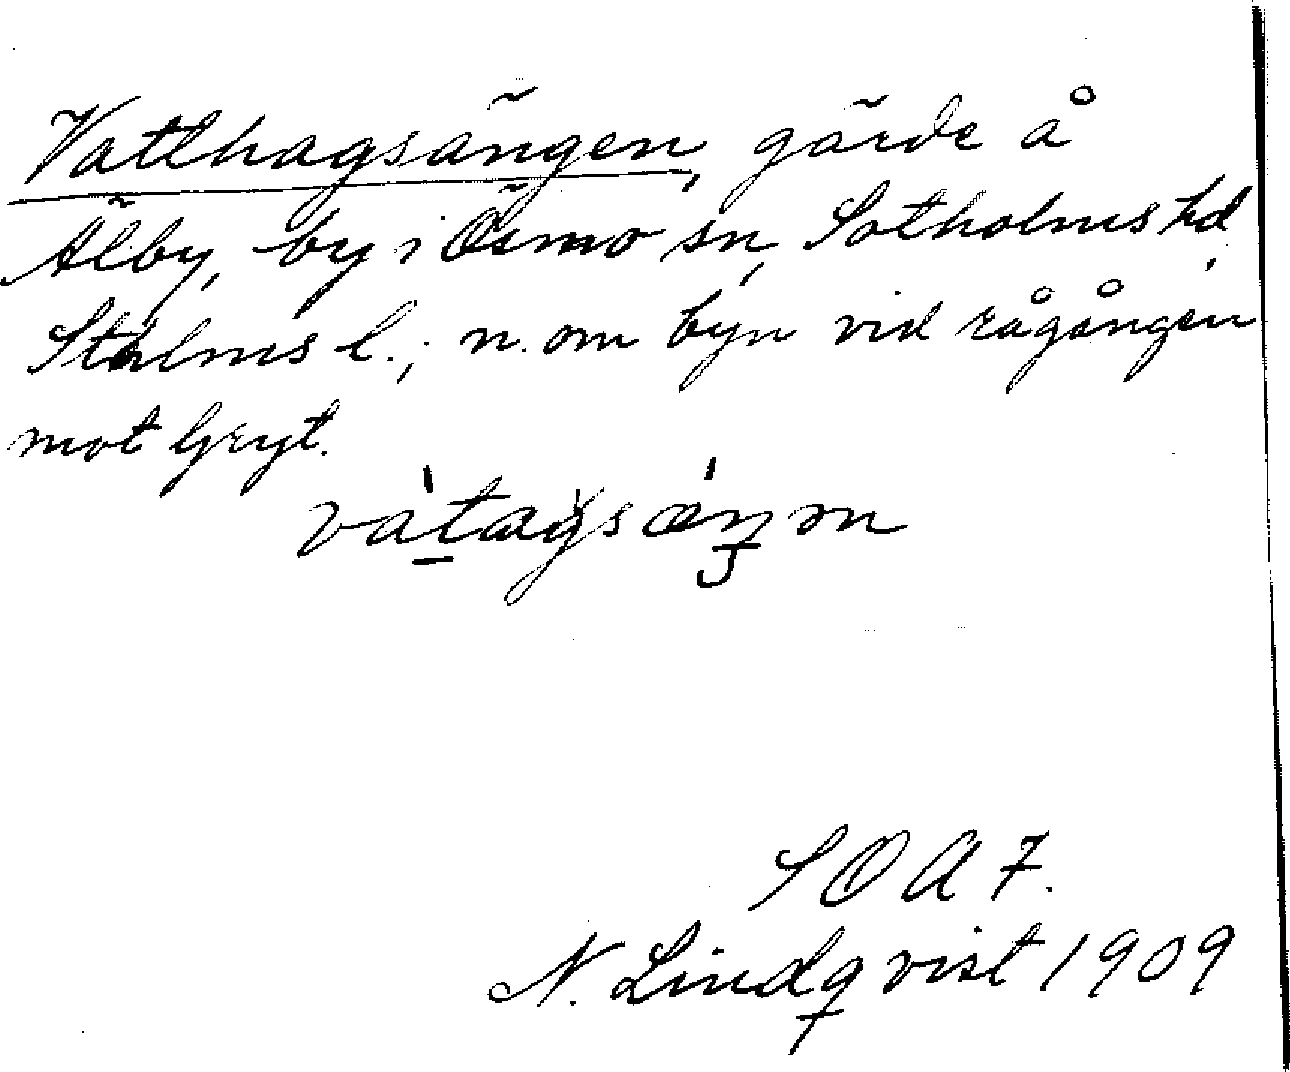 Vatthagsängen, gärde å
Älby, by i Ösmo sn, Sotholms hd,
Sthlms l.; n. om byn vid rågången
mot Gryt.
S O A F.
N. Lindqvist 1909